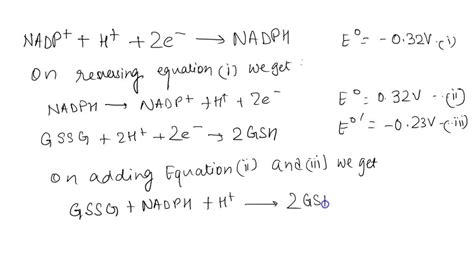 NADP⁺ + H⁺ + 2e⁻ → NADPH E° = -0.32V -(i)
On reversing equation (i) we get:
NADPH → NADP⁺ + H⁺ + 2e⁻ E° = 0.32V --(ii)
GSSG + 2H⁺ + 2e⁻ → 2GSH E°' = -0.23V -(iii)
On adding Equation (ii) and (iii) we get
GSSG + NADPH + H⁺ → 2GS